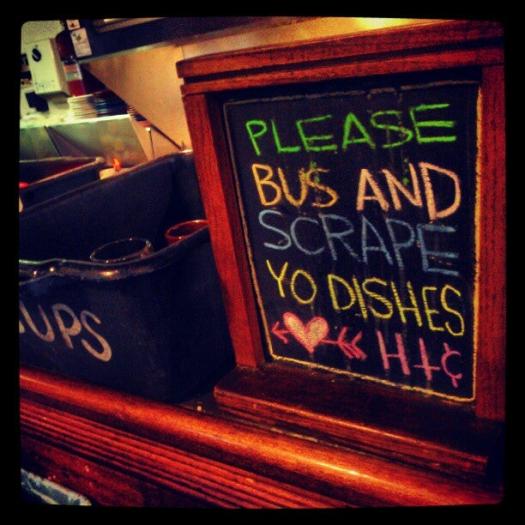 PLEASE
BUS AND
SCRAPE
YO DISHES
H+C
UPS